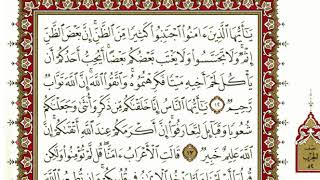 يَٰٓأَيُّهَا ٱلَّذِينَ ءَامَنُوا۟ ٱجْتَنِبُوا۟ كَثِيرًا مِّنَ ٱلظَّنِّ إِنَّ بَعْضَ ٱلظَّنِّ
إِثْمٌ ۖ وَلَا تَجَسَّسُوا۟ وَلَا يَغْتَب بَّعْضُكُم بَعْضًا ۚ أَيُحِبُّ أَحَدُكُمْ أَن
يَأْكُلَ لَحْمَ أَخِيهِ مَيْتًا فَكَرِهْتُمُوهُ ۚ وَٱتَّقُوا۟ ٱللَّهَ ۚ إِنَّ ٱللَّهَ تَوَّابٌ
رَّحِيمٌ ١٢ يَٰٓأَيُّهَا ٱلنَّاسُ إِنَّا خَلَقْنَٰكُم مِّن ذَكَرٍ وَأُنثَىٰ وَجَعَلْنَٰكُمْ
شُعُوبًا وَقَبَآئِلَ لِتَعَارَفُوٓا۟ ۚ إِنَّ أَكْرَمَكُمْ عِندَ ٱللَّهِ أَتْقَىٰكُمْ ۚ إِنَّ
ٱللَّهَ عَلِيمٌ خَبِيرٌ ١٣ قَالَتِ ٱلْأَعْرَابُ ءَامَنَّا ۖ قُل لَّمْ تُؤْمِنُوا۟ وَلَٰكِن
قُولُوٓا۟ أَسْلَمْنَا وَلَمَّا يَدْخُلِ ٱلْإِيمَٰنُ فِى قُلُوبِكُمْ ۖ وَإِن تُطِيعُوا۟
الحزب
٥٢